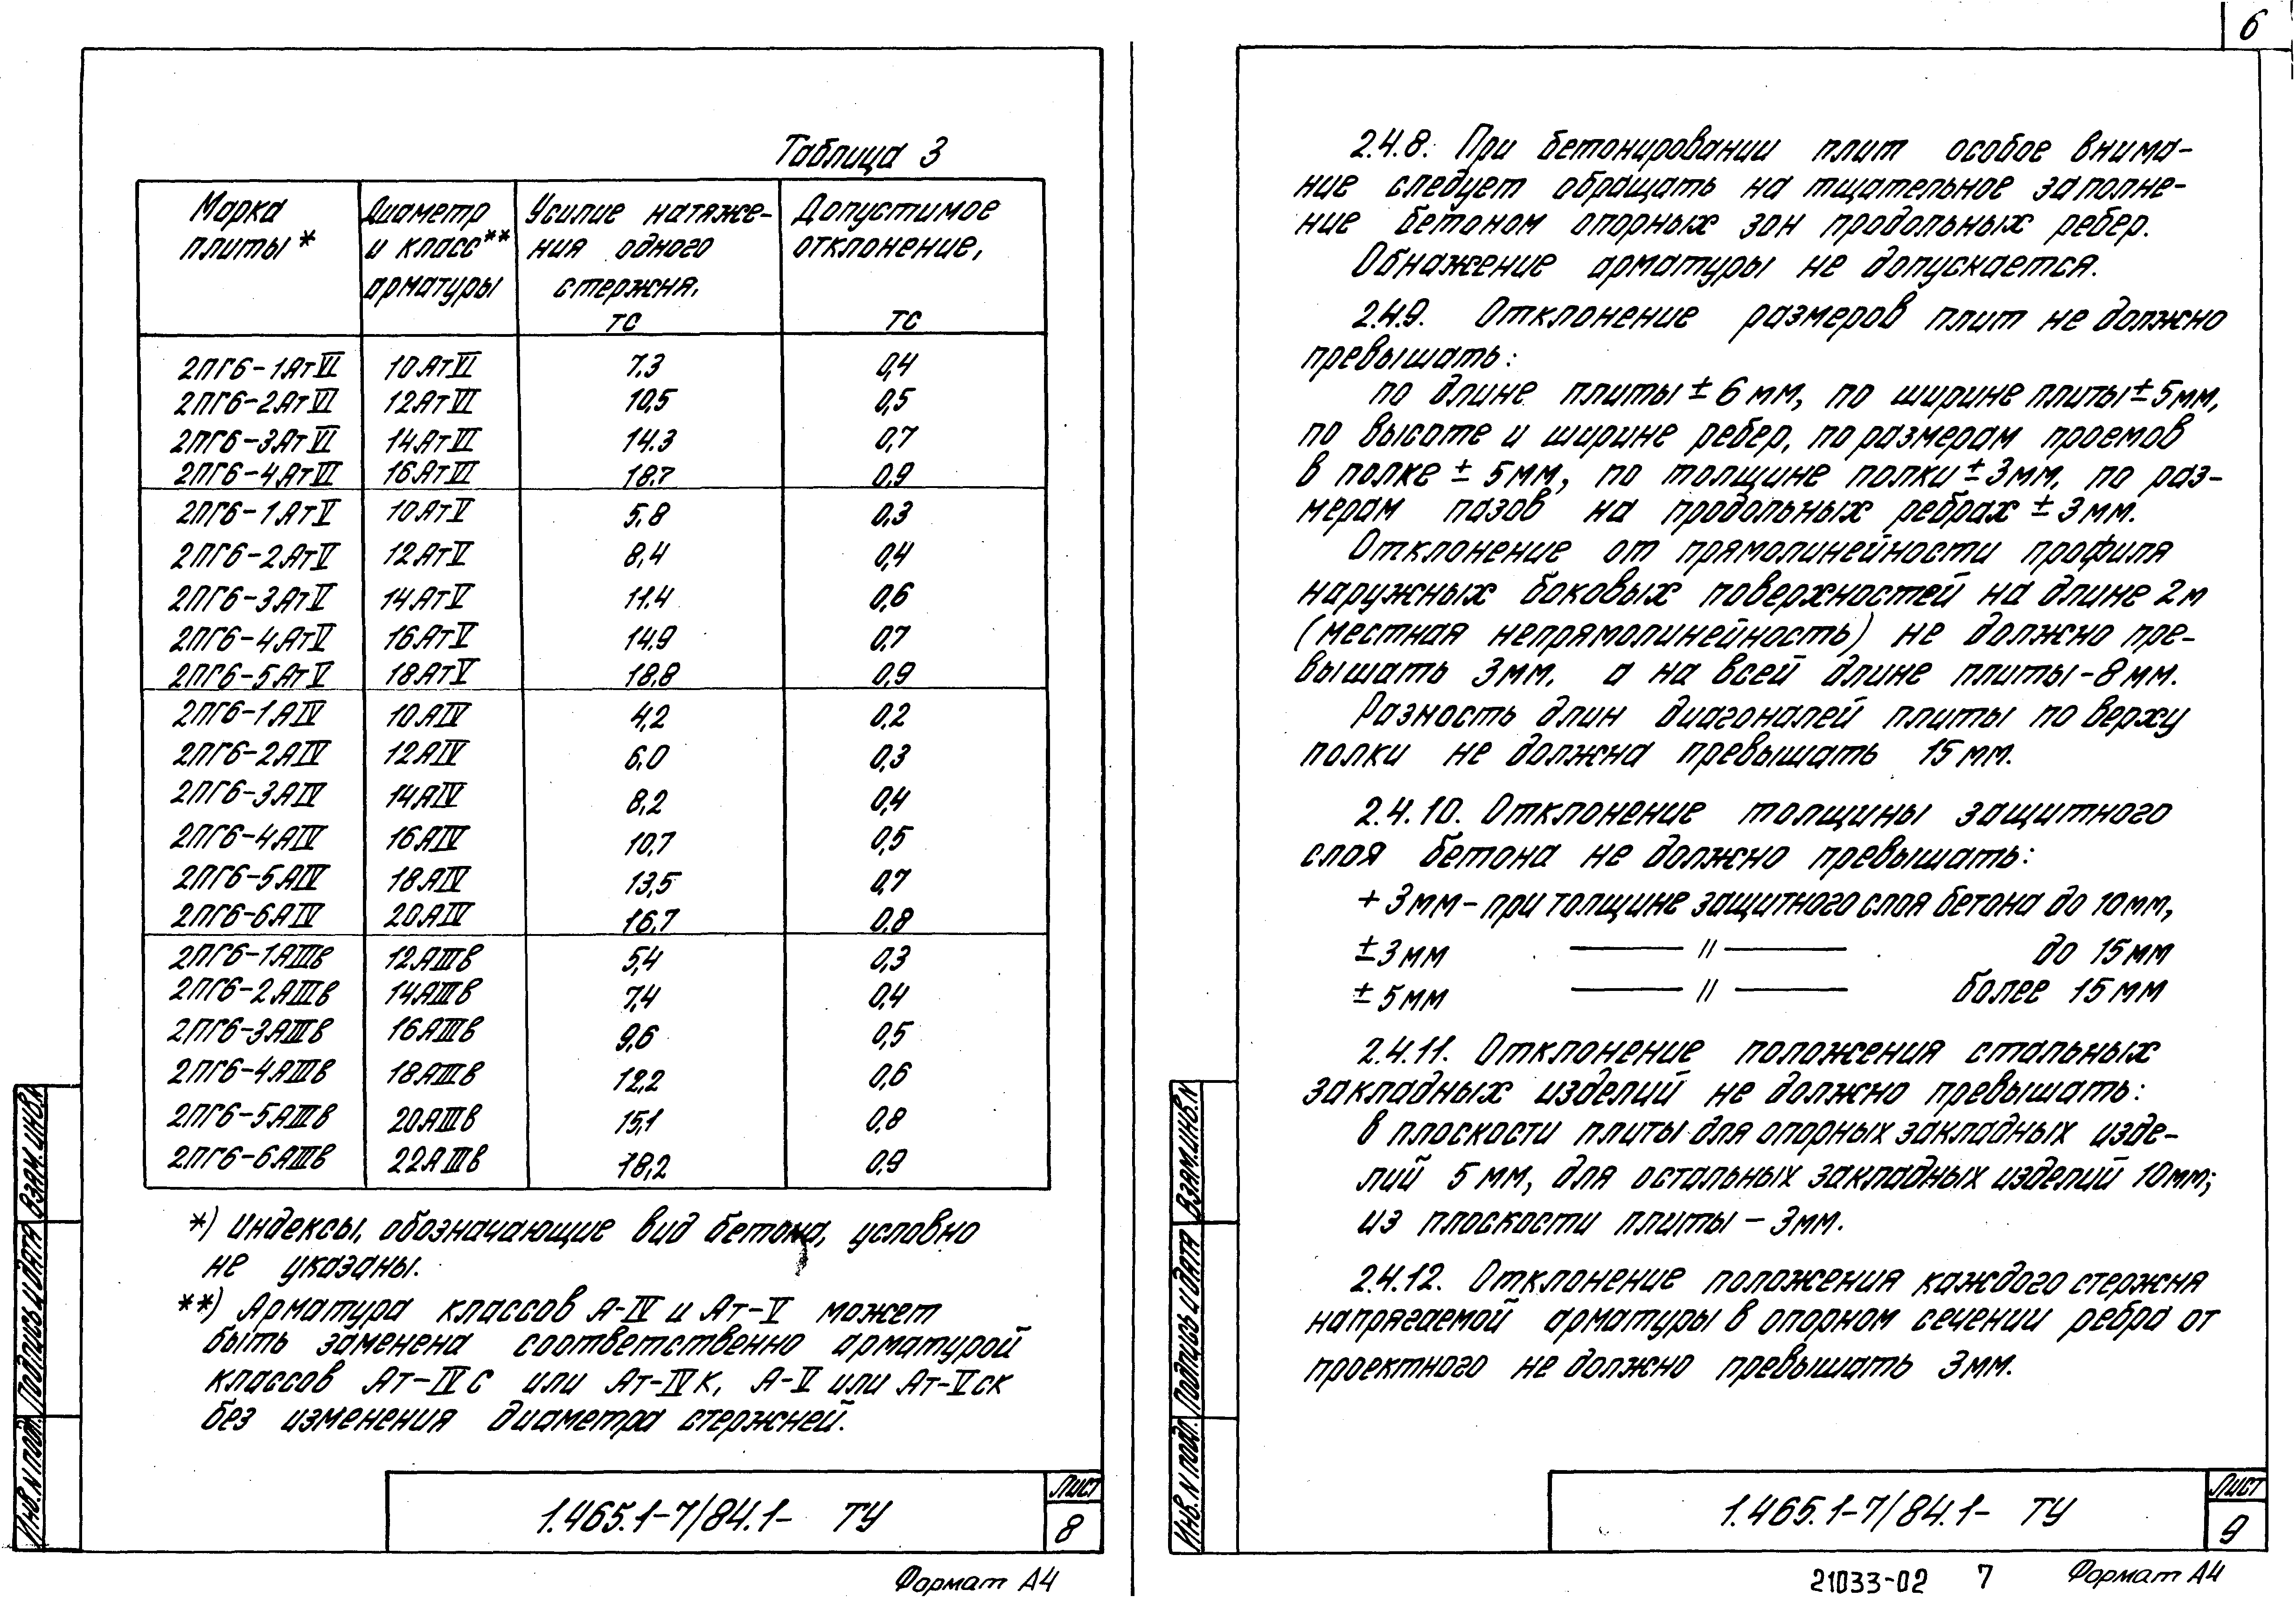 6
Таблица 3
Марка плиты* | Диаметр и класс** арматуры | Усилие натяже-ния одного стержня, тс | Допустимое отклонение, тс
2ПГ6-1АтVI 10АтVI 7.3 0,4
2ПГ6-2АтVI 12АтVI 10,5 0,5
2ПГ6-3АтVI 14АтVI 14.3 0,7
2ПГ6-4АтVI 16АтVI 18.7 0,9
2ПГ6-1АтV 10АтV 5,8 0,3
2ПГ6-2АтV 12АтV 8,4 0,4
2ПГ6-3АтV 14АтV 11.4 0,6
2ПГ6-4АтV 16АтV 14.9 0,7
2ПГ6-5АтV 18АтV 18.8 0,9
2ПГ6-1АIV 10АIV 4,2 0,2
2ПГ6-2АIV 12АIV 6,0 0,3
2ПГ6-3АIV 14АIV 8,2 0,4
2ПГ6-4АIV 16АIV 10,7 0,5
2ПГ6-5АIV 18АIV 13,5 0,7
2ПГ6-6АIV 20АIV 16,7 0,8
2ПГ6-1АIIIв 12АIIIв 5,4 0,3
2ПГ6-2АIIIв 14АIIIв 7,4 0,4
2ПГ6-3АIIIв 16АIIIв 9,6 0,5
2ПГ6-4АIIIв 18АIIIв 12,2 0,6
2ПГ6-5АIIIв 20АIIIв 15,1 0,8
2ПГ6-6АIIIв 22АIIIв 18,2 0,9
*) Индексы, обозначающие вид бетона, условно
не указаны.
**) Арматура классов А-IV и Ат-V может
быть заменена соответственно арматурой
классов Ат-IVС или Ат-IVК, А-V или Ат-Vск
без изменения диаметра стержней.
Инв.N подл. Подпись и дата Взам.инв.N
1.465.1-7/84.1- ТУ
Лист
8
Формат А4
2.4.8. При бетонировании плит особое внима-
ние следует обращать на тщательное заполне-
ние бетоном опорных зон продольных ребер.
Обнажение арматуры не допускается.
2.4.9. Отклонение размеров плит не должно
превышать:
по длине плиты ± 6 мм, по ширине плиты ± 5мм,
по высоте и ширине ребер, по размерам проемов
в полке ± 5мм, по толщине полки ± 3мм, по раз-
мерам пазов на продольных ребрах ± 3мм.
Отклонение от прямолинейности профиля
наружных боковых поверхностей на длине 2м
(местная непрямолинейность) не должно пре-
вышать 3мм, а на всей длине плиты - 8мм.
Разность длин диагоналей плиты по верху
полки не должна превышать 15мм.
2.4.10. Отклонение толщины защитного
слоя бетона не должно превышать:
+ 3мм - при толщине защитного слоя бетона до 10мм,
± 3мм —— // —— до 15мм
± 5мм —— // —— более 15мм
2.4.11. Отклонение положения стальных
закладных изделий не должно превышать:
в плоскости плиты для опорных закладных изде-
лий 5 мм, для остальных закладных изделий 10мм;
из плоскости плиты - 3мм.
2.4.12. Отклонение положения каждого стержня
напрягаемой арматуры в опорном сечении ребра от
проектного не должно превышать 3мм.
Инв.N подл. Подпись и дата Взам.инв.N
1.465.1-7/84.1- ТУ
Лист
9
21033-02 7 Формат А4